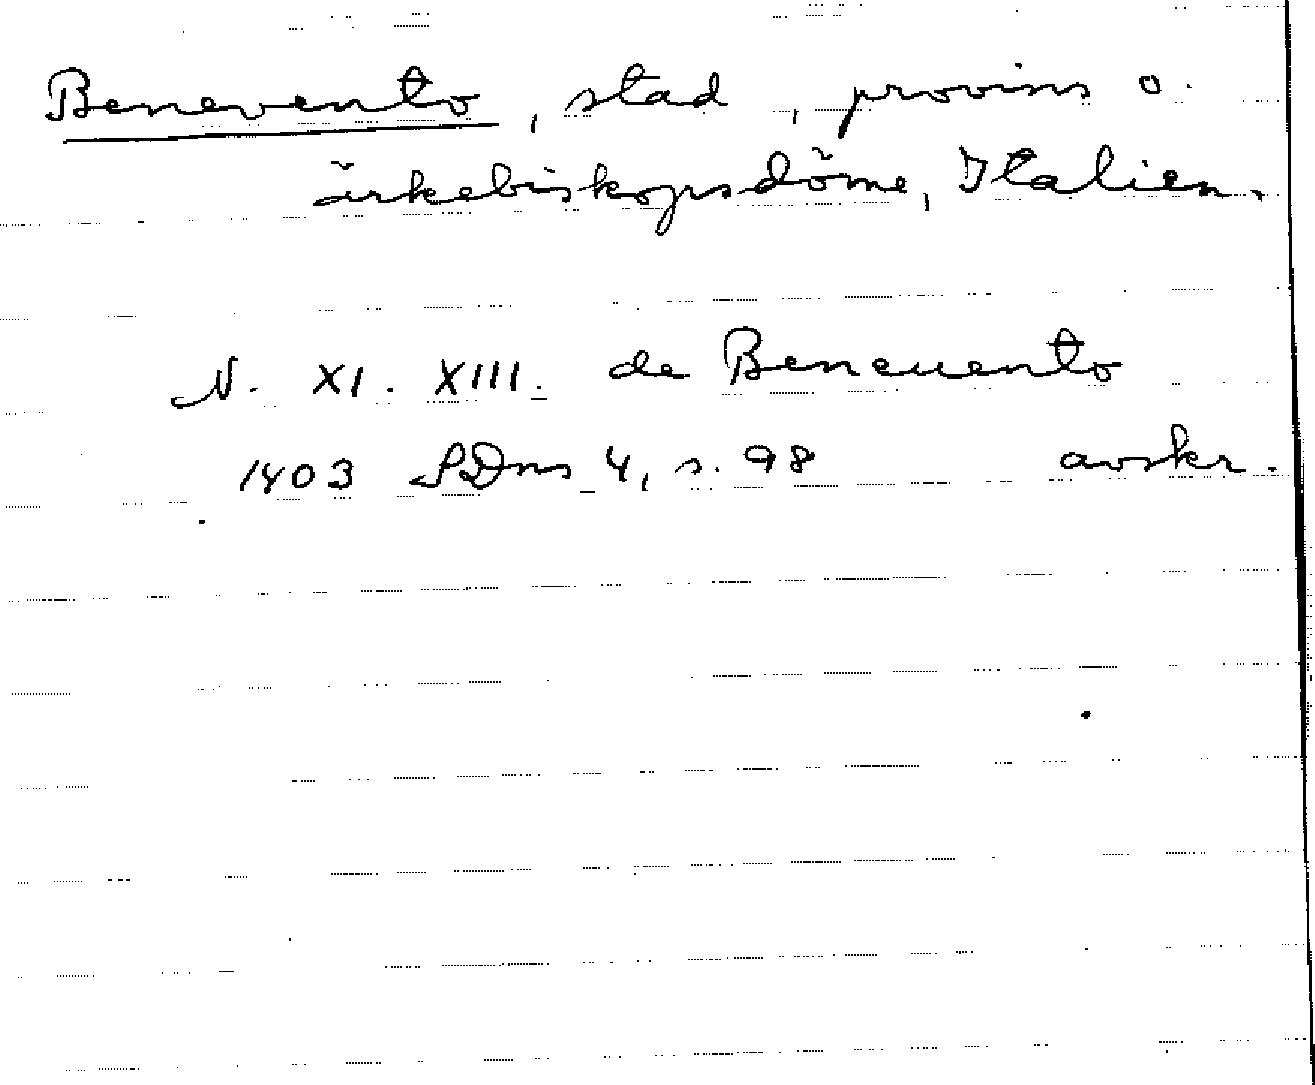 Benevento, stad, provins o.
ärkebiskopsdöme, Italien.
N. XI. XIII. de Beneuento
1403 SDns 4, s. 98 avskr.